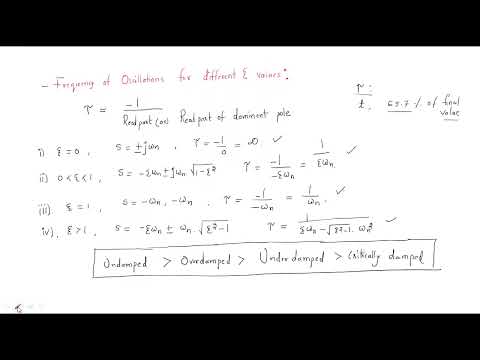 - Frequency of Oscillations for different ξ values:
τ = -1 / Real part (or) Real part of dominent pole
τ:
t. 63.7 % of final value
i) ξ = 0, S = ±jωn, τ = -1/0 = ∞ ✓
ii) 0<ξ<1, S = -ξωn ± jωn √1-ξ² τ = -1/-ξωn = 1/ξωn ✓
iii). ξ = 1, S = -ωn, -ωn, τ = -1/-ωn = 1/ωn. ✓
iv). ξ>1, S = -ξωn ± ωn. √ξ²-1 τ = 1/ξωn - √ξ²-1. ωn² ✓
Undamped > Overdamped > Underdamped > Critically damped